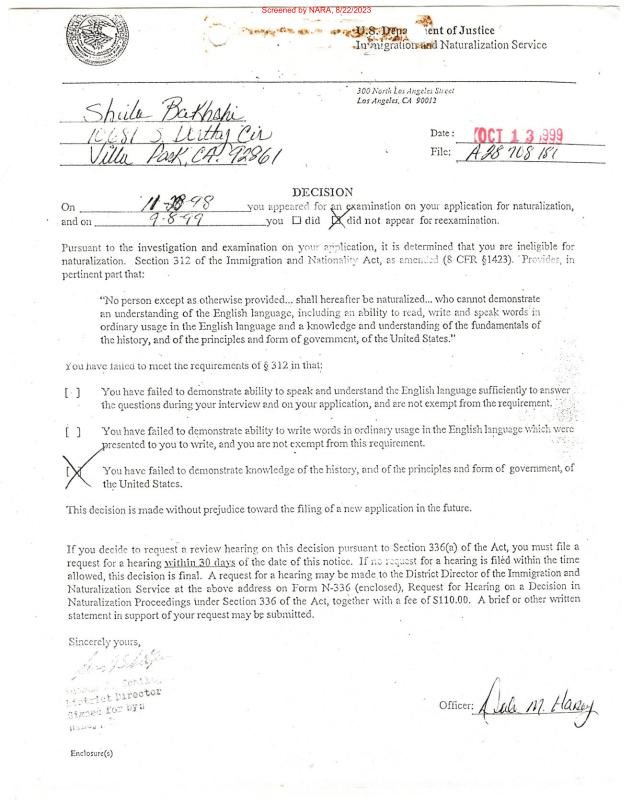 Screened by NARA, 8/22/2023
U.S. Department of Justice
Immigration and Naturalization Service
300 North Los Angeles Street
Los Angeles, CA 90012
Sheila Bakhshi
10681 S. Witty Cir
Villa Park, CA. 92861
Date: OCT 13 1999
File: A28 708 181
DECISION
On 11-28-98 you appeared for an examination on your application for naturalization,
and on 9-8-99 you ☐ did ☒ did not appear for reexamination.
Pursuant to the investigation and examination on your application, it is determined that you are ineligible for
naturalization. Section 312 of the Immigration and Nationality Act, as amended (8 CFR §1423). Provides, in
pertinent part that:
“No person except as otherwise provided... shall hereafter be naturalized... who cannot demonstrate
an understanding of the English language, including an ability to read, write and speak words in
ordinary usage in the English language and a knowledge and understanding of the fundamentals of
the history, and of the principles and form of government, of the United States.”
You have failed to meet the requirements of § 312 in that:
[ ] You have failed to demonstrate ability to speak and understand the English language sufficiently to answer
the questions during your interview and on your application, and are not exempt from the requirement.
[ ] You have failed to demonstrate ability to write words in ordinary usage in the English language which were
presented to you to write, and you are not exempt from this requirement.
[X] You have failed to demonstrate knowledge of the history, and of the principles and form of government, of
the United States.
This decision is made without prejudice toward the filing of a new application in the future.
If you decide to request a review hearing on this decision pursuant to Section 336(a) of the Act, you must file a
request for a hearing within 30 days of the date of this notice. If no request for a hearing is filed within the time
allowed, this decision is final. A request for a hearing may be made to the District Director of the Immigration and
Naturalization Service at the above address on Form N-336 (enclosed), Request for Hearing on a Decision in
Naturalization Proceedings under Section 336 of the Act, together with a fee of $110.00. A brief or other written
statement in support of your request may be submitted.
Sincerely yours,
District Director
Signed for by:
Officer: M. Haney
Enclosure(s)